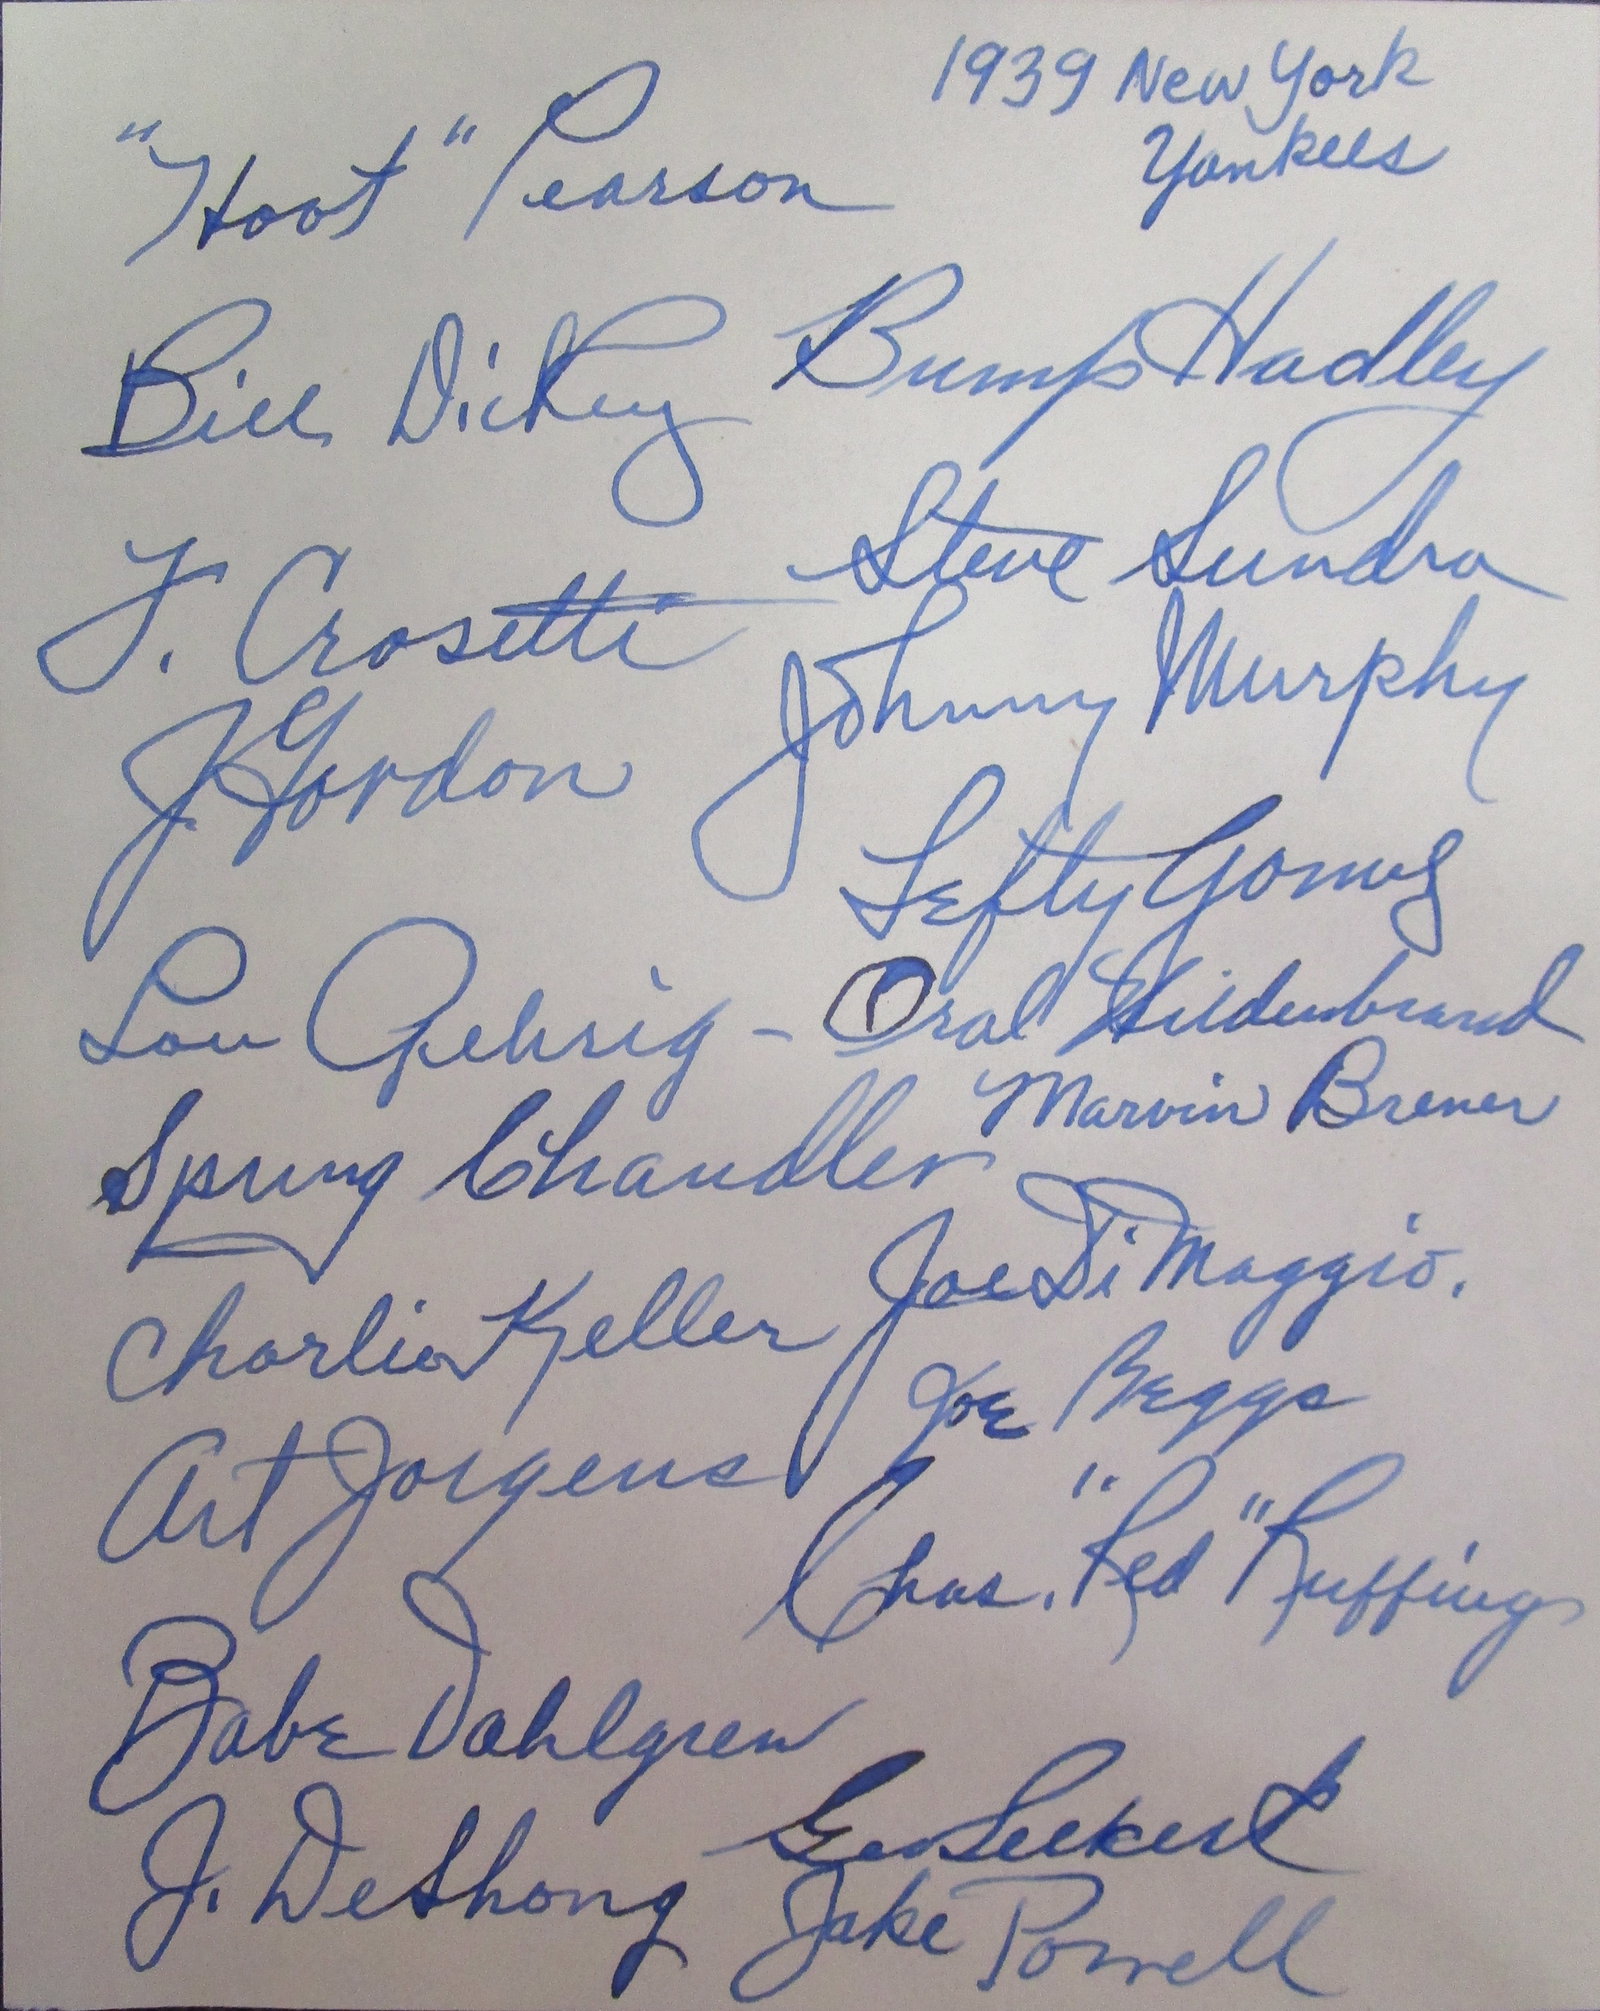 1939 New York
Yankees
"Hoot" Pearson
Bill Dickey
Bump Hadley
F. Crosetti
Steve Sundra
J. Gordon
Johnny Murphy
Lefty Gomez
Lou Gehrig -
Oral Hildenbrand
Spurg Chandler
Marvin Brener
Joe DiMaggio.
Charlie Keller
Joe Beggs
Art Jorgens
Chas. "Red" Ruffing
Babe Dahlgren
Geo Selkirk
J. DeShong
Jake Powell